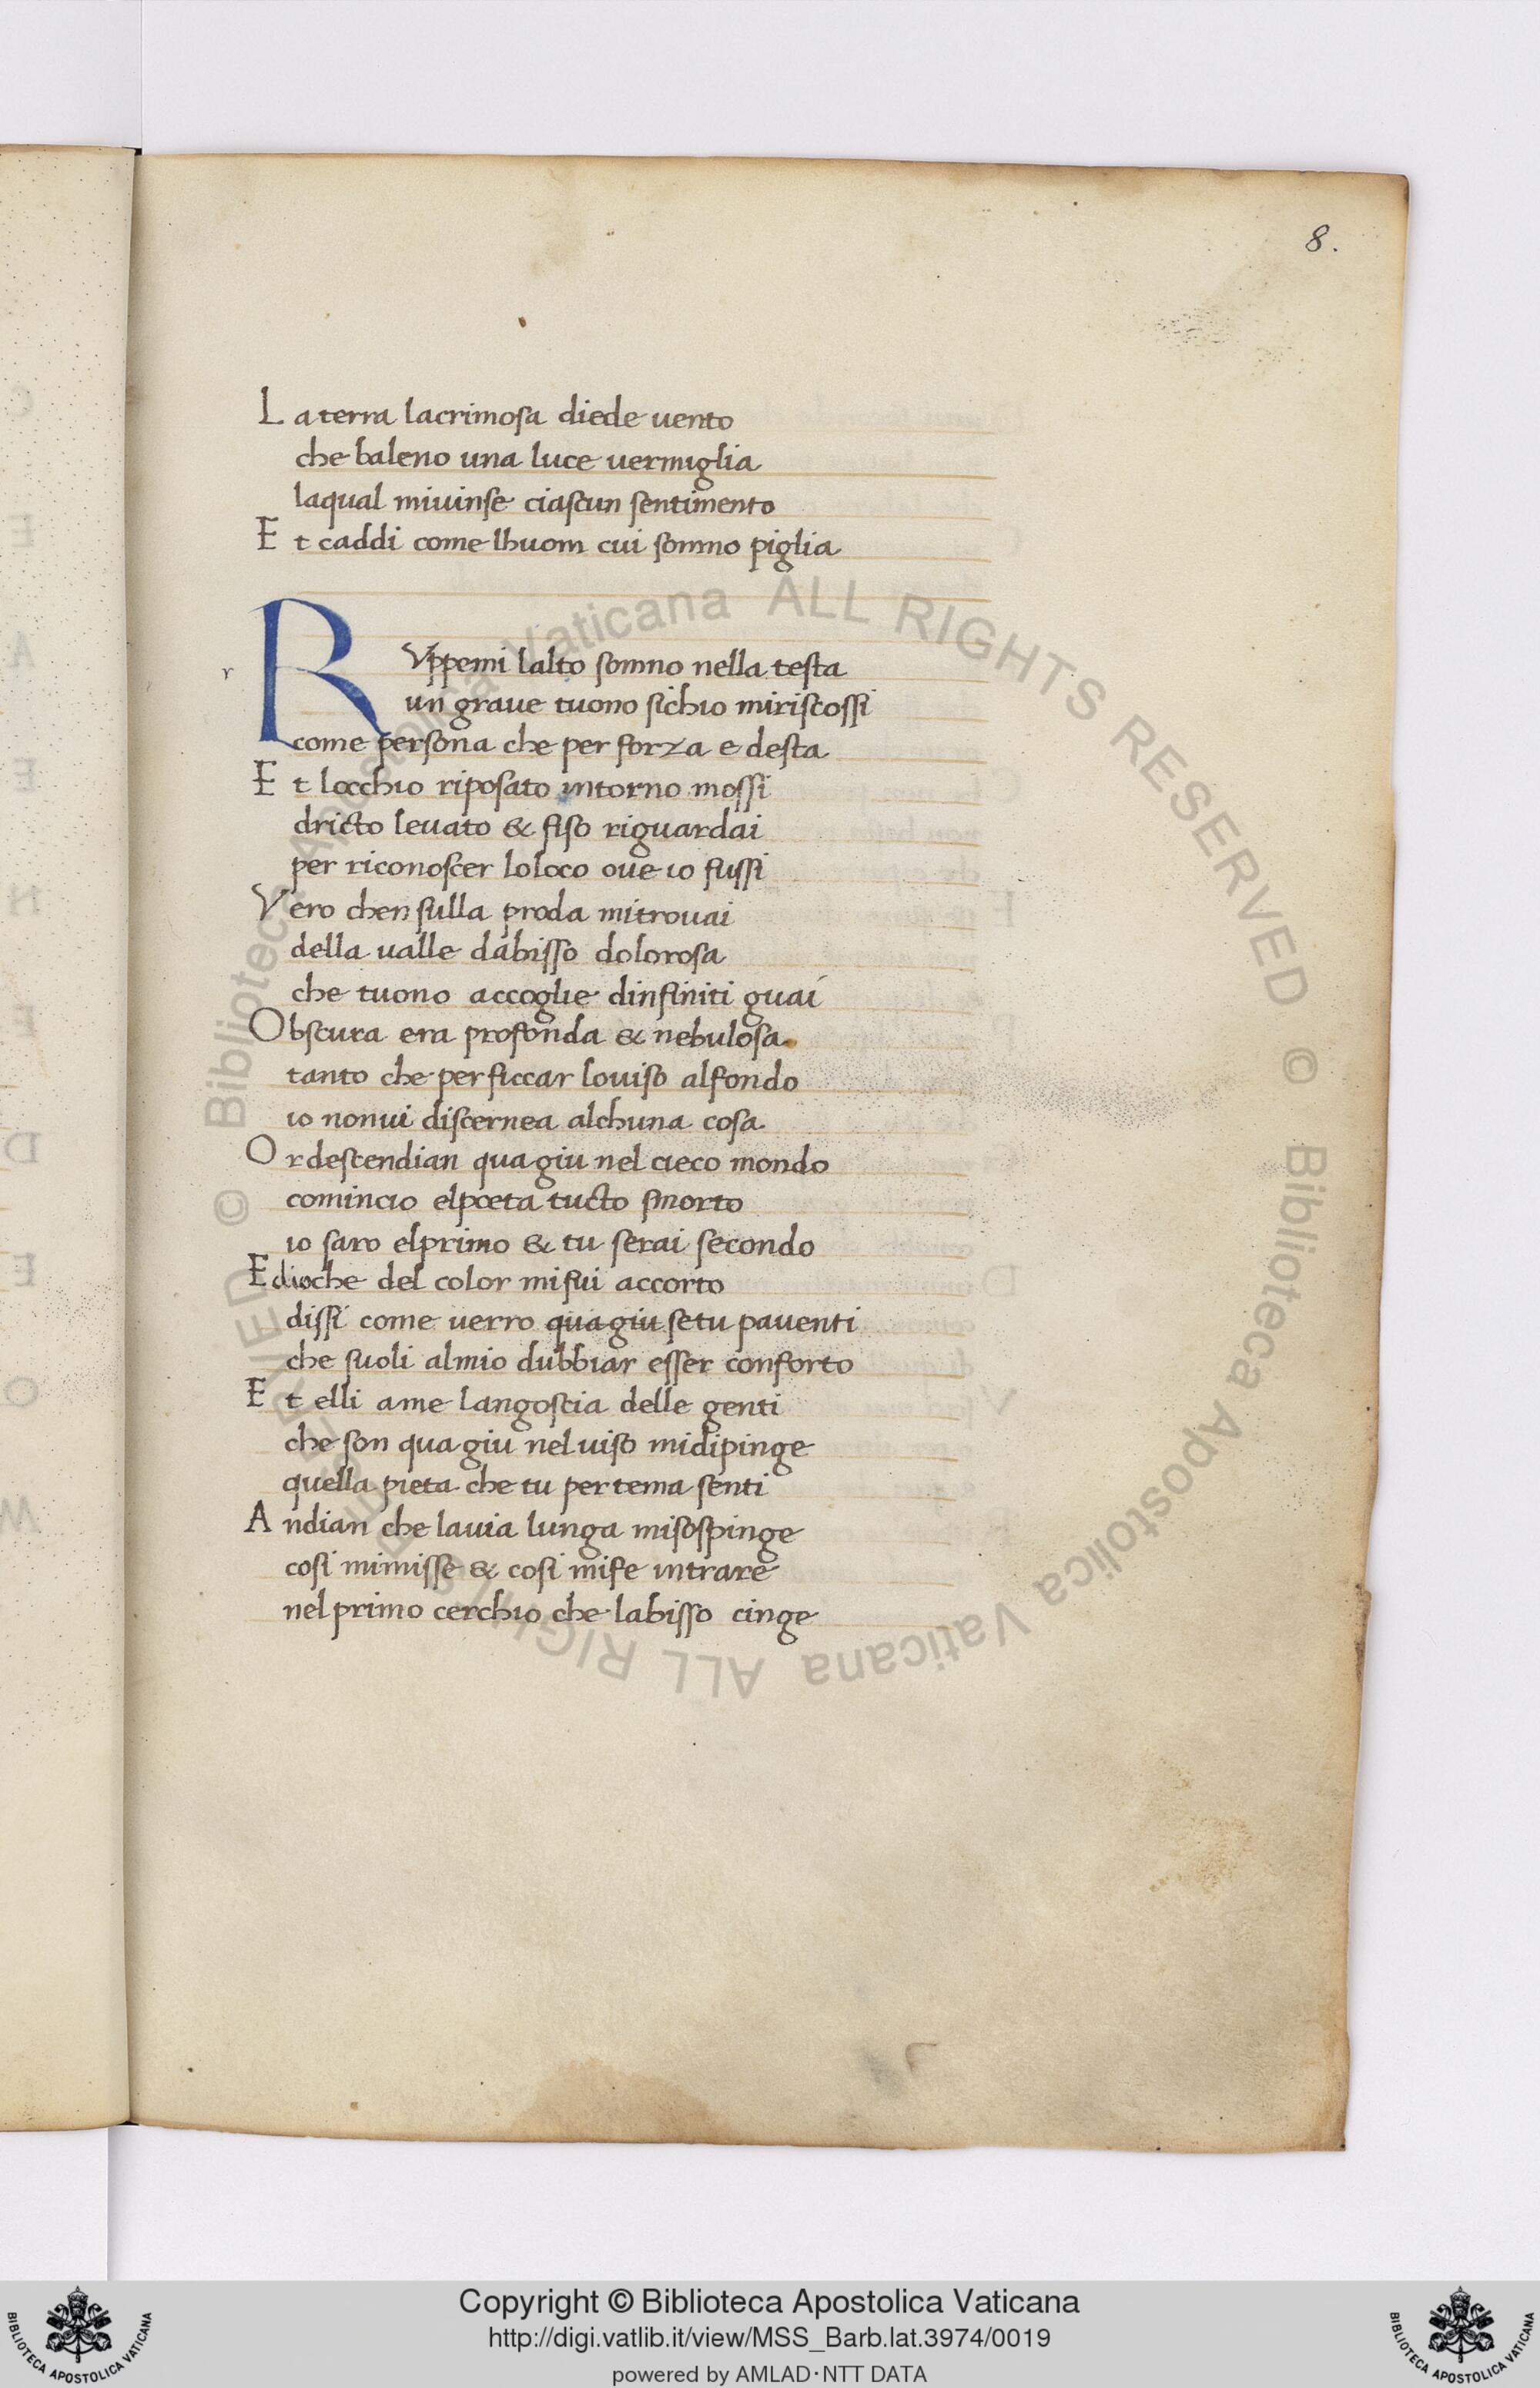 8.
La terra lacrimosa diede uento
che baleno una luce uermiglia
laqual miuinse ciascun sentimento
Et caddi come lhuom cui somno piglia
r
RVppemi lalto somno nella testa
un graue tuono sichio miriscossi
come persona che per forza e desta
Et locchio riposato intorno mossi
dricto leuato & fiso riguardai
per riconoscer loloco oue io fussi
Vero chen sulla proda mitrouai
della ualle dabisso dolorosa
che tuono accoglie dinfiniti guai
Obscura era profonda & nebulosa
tanto che per ficcar louiso alfondo
io nonui discernea alchuna cosa
Or descendian qua giu nel cieco mondo
comincio elpoeta tucto smorto
io saro elprimo & tu serai secondo
Edioche del color mifui accorto
dissi come uerro qua giu setu pauenti
che suoli almio dubbiar esser conforto
Et elli ame langoscia delle genti
che son qua giu nel uiso midipinge
quella pieta che tu per tema senti
Andian che lauia lunga misospinge
cosi mimisse & cosi mife intrare
nel primo cerchio che labisso cinge
© Biblioteca Apostolica Vaticana ALL RIGHTS RESERVED
© Biblioteca Apostolica Vaticana ALL RIGHTS RESERVED
BIBLIOTECA APOSTOLICA VATICANA
Copyright © Biblioteca Apostolica Vaticana
http://digi.vatlib.it/view/MSS_Barb.lat.3974/0019
powered by AMLAD·NTT DATA
BIBLIOTECA APOSTOLICA VATICANA